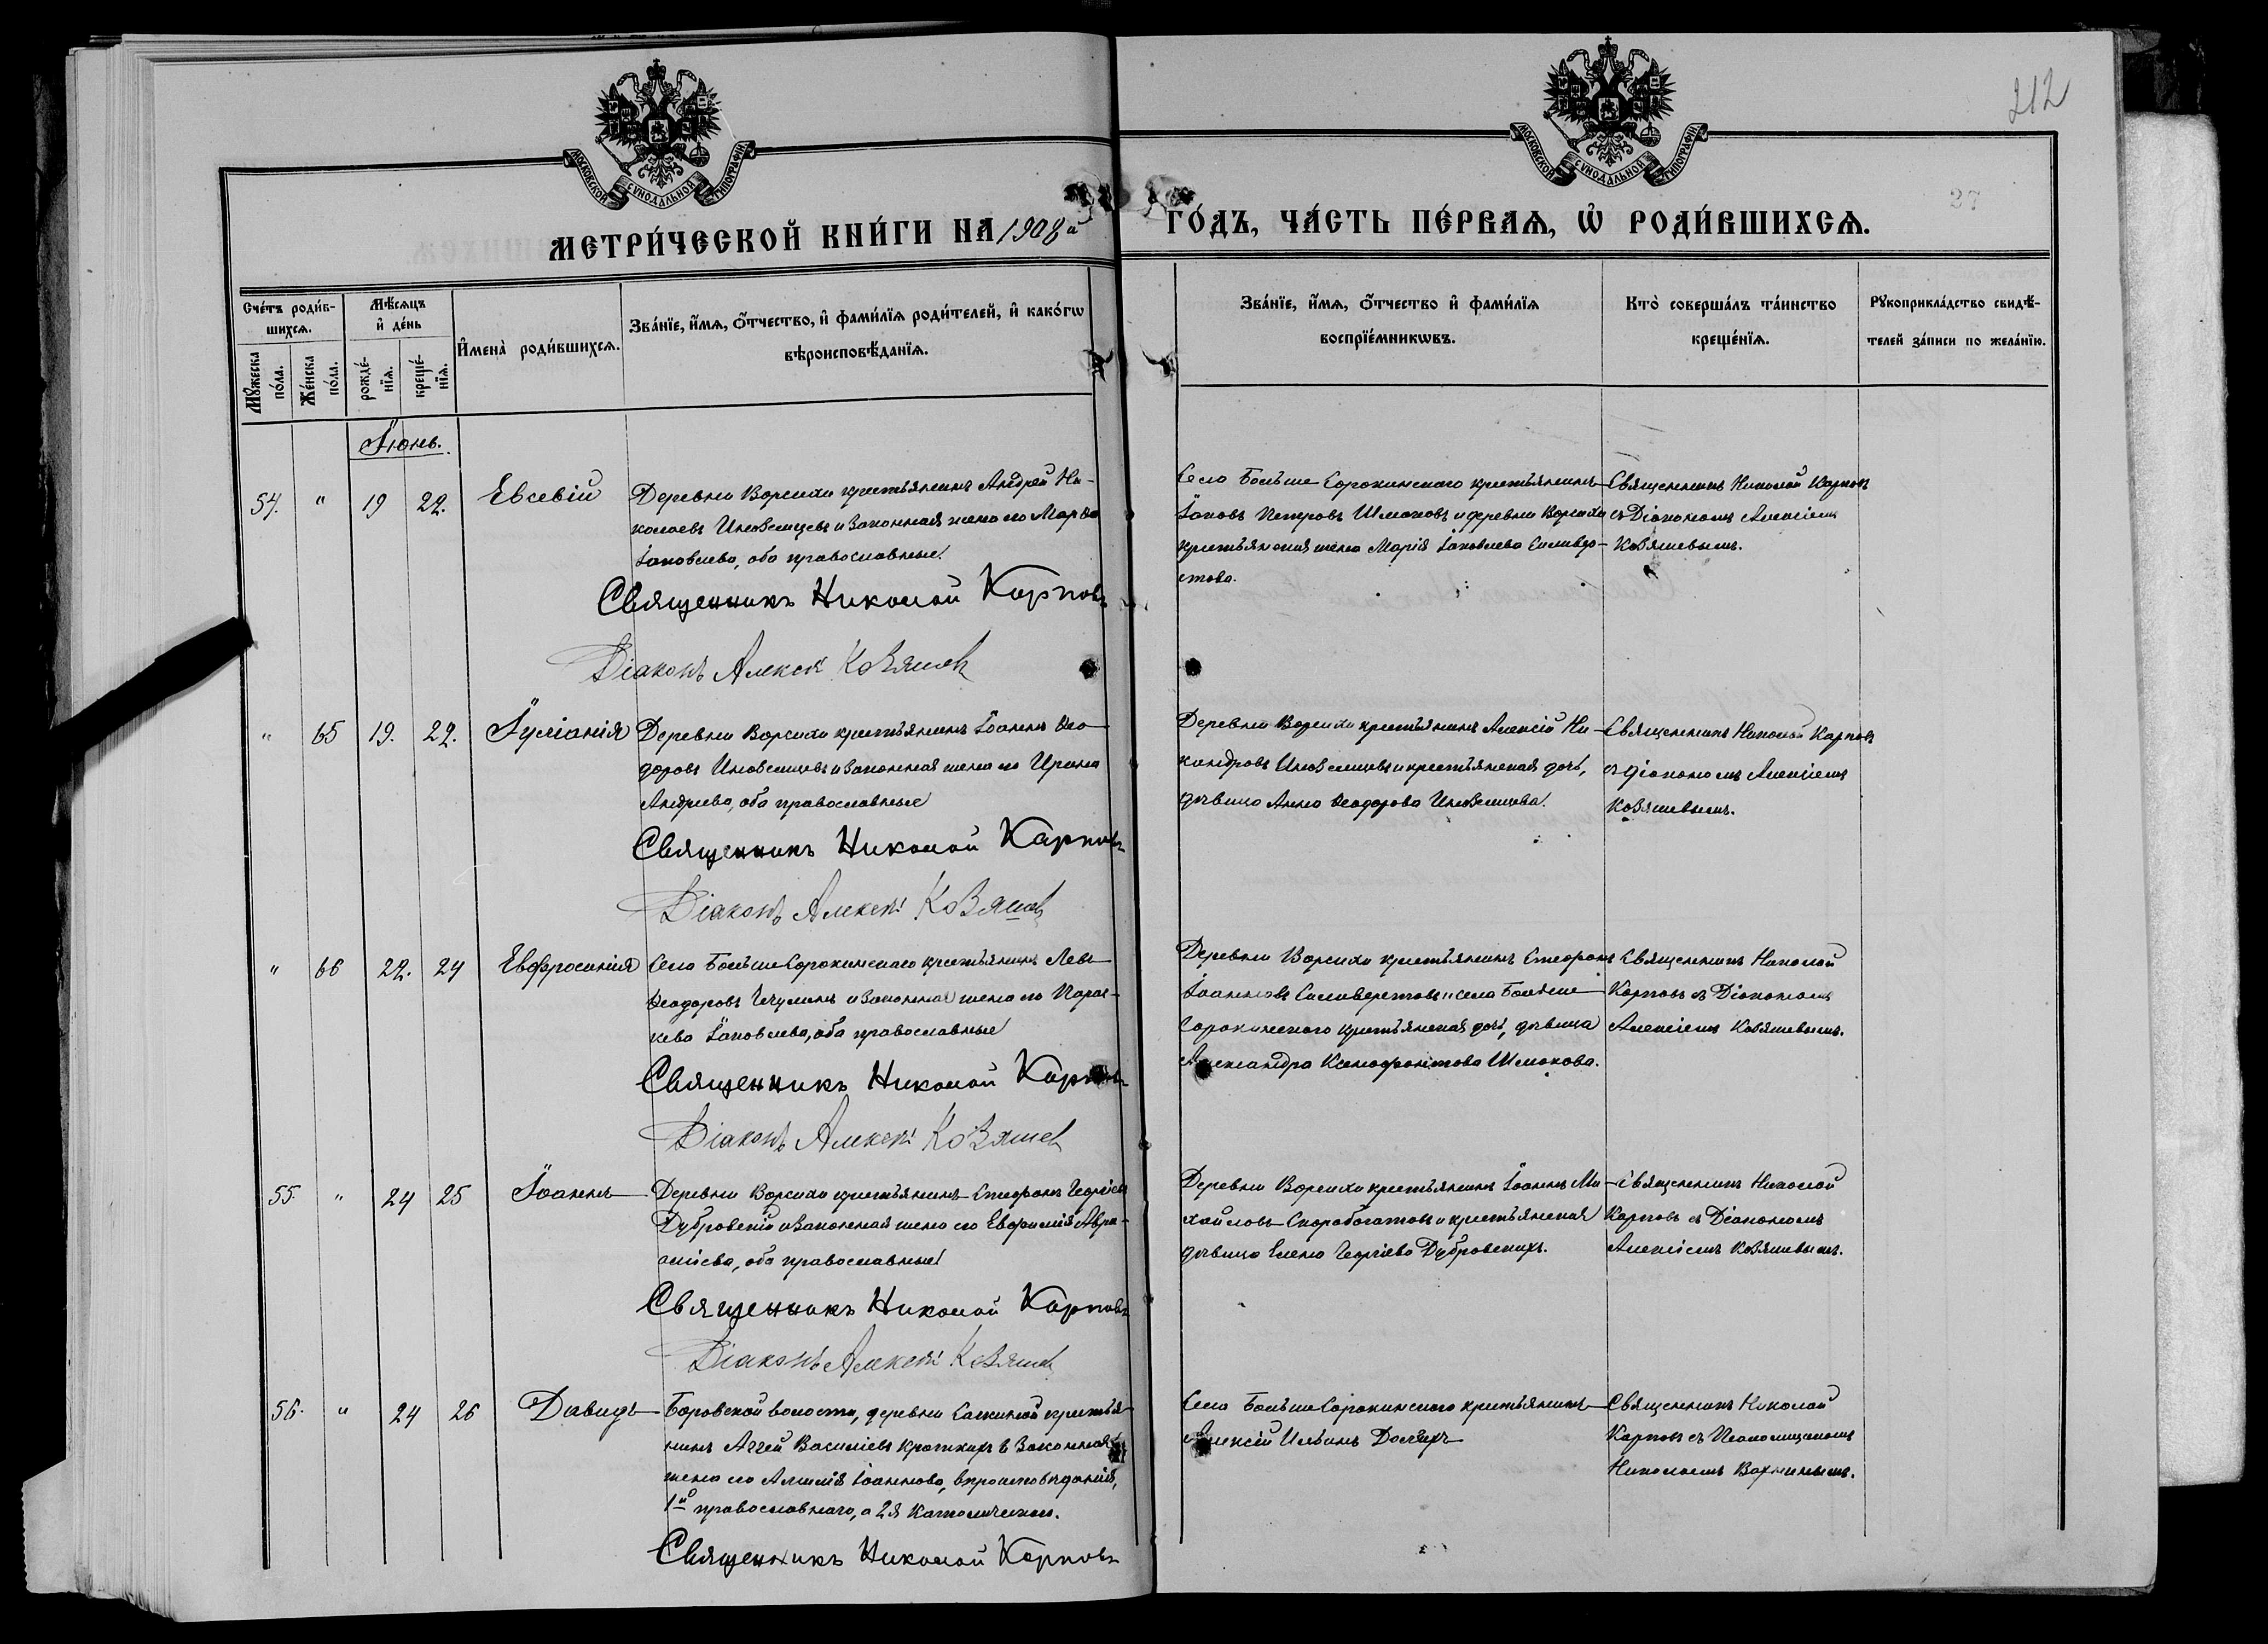 212
27
МОСКОВСКОЙ СѴНОДАЛЬНОЙ ТИПОГРАФІИ
МОСКОВСКОЙ СѴНОДАЛЬНОЙ ТИПОГРАФІИ
МЕТРИ́ЧЕСКОЙ КНИ́ГИ НА 1908й ГО́ДЪ, ЧА́СТЬ ПЕ́РВАѦ, Ѡ РОДИ́ВШИХСѦ.
Сче́тъ роди́в-
шихсѧ.
Мꙋжеска по́ла.
Же́нска по́ла.
Мѣ́сѧцъ
и҆ де́нь
рожде́-
нїѧ.
креще́-
нїѧ.
И҆мена̀ роди́вшихсѧ.
Зва́нїе, и҆́мѧ, ѻ҆́тчество, и҆ фами́лїѧ роди́телей, и҆ како́гѡ
вѣроисповѣ́данїѧ.
Зва́нїе, и҆́мѧ, ѻ҆́тчество и҆ фами́лїѧ
воспрїе́мникѡвъ.
Кто̀ соверша́лъ та́инство
креще́нїѧ.
Рꙋкоприкла́дство свидѣ́-
телей за́писи по жела́нїю.
Іюнь.
54. " 19 22. Евсевій
Деревни Ворсихи крестьянинъ Андрей Ни-
колаевъ Иноземцевъ и законная жена его Марѳа
Іаковлева, оба православные
Священникъ Николай Карповъ
Діаконъ Алексѣй Козяшев
Село Больше Сорокинскаго крестьянинъ
Іаковъ Петровъ Шмаковъ и деревни Ворсихи
крестьянская жена Марія Іаковлева Сильвер-
стова.
Священникъ Николай Карповъ
съ Діакономъ Алексіемъ
Козяшевымъ.
" 65 19. 22. Іуліанія
Деревни Ворсихи крестьянинъ Іоаннъ Ѳео-
доровъ Иноземцевъ и законная жена его Ирина
Андреева, оба православные
Священникъ Николай Карповъ
Діаконъ Алексѣй Козяшев
Деревни Ворсихи крестьянинъ Алексій Ни-
кандровъ Иноземцевъ и крестьянская дочь,
дѣвица Анна Ѳеодорова Иноземцева.
Священникъ Николай Карповъ
съ діакономъ Алексіемъ
Козяшевымъ.
" 66 22. 24 Евфросинія
Село Больше Сорокинскаго крестьянинъ Левъ
Ѳеодоровъ и законная жена его Парас-
кева Іаковлева, оба православные
Священникъ Николай Карповъ
Діаконъ Алексѣй Козяшев
Деревни Ворсихи крестьянинъ Стефанъ
Іоанновъ Сильверстовъ и села Больше
Сорокинскаго крестьянская дочь, дѣвица
Александра Ксенофонтова Шмакова.
Священникъ Николай
Карповъ съ Діакономъ
Алексіемъ Козяшевымъ.
55. " 24 25 Іоаннъ
Деревни Ворсихи крестьянинъ Стефанъ Георгіевъ
Дубровскій и законная жена его Евфимія Авра-
аміева, оба православные
Священникъ Николай Карповъ
Діаконъ Алексѣй Козяшев
Деревни Ворсихи крестьянинъ Іоаннъ Ми-
хайловъ Скоробогатовъ и крестьянская
дѣвица Елена Георгіева Дубровскихъ.
Священникъ Николай
Карповъ съ Діакономъ
Алексіемъ Козяшевымъ.
56. " 24 26 Давидъ
Боровской волости, деревни крестья-
нинъ Аггей Василіевъ Кротких и законная
жена его Іоаннова, вѣроисповѣданія,
1й православнаго, а 2я Католическаго.
Священникъ Николай Карповъ
Село Больше Сорокинскаго крестьянинъ
Алексій Ильинъ
Священникъ Николай
Карповъ съ Псаломщикомъ
Николаемъ